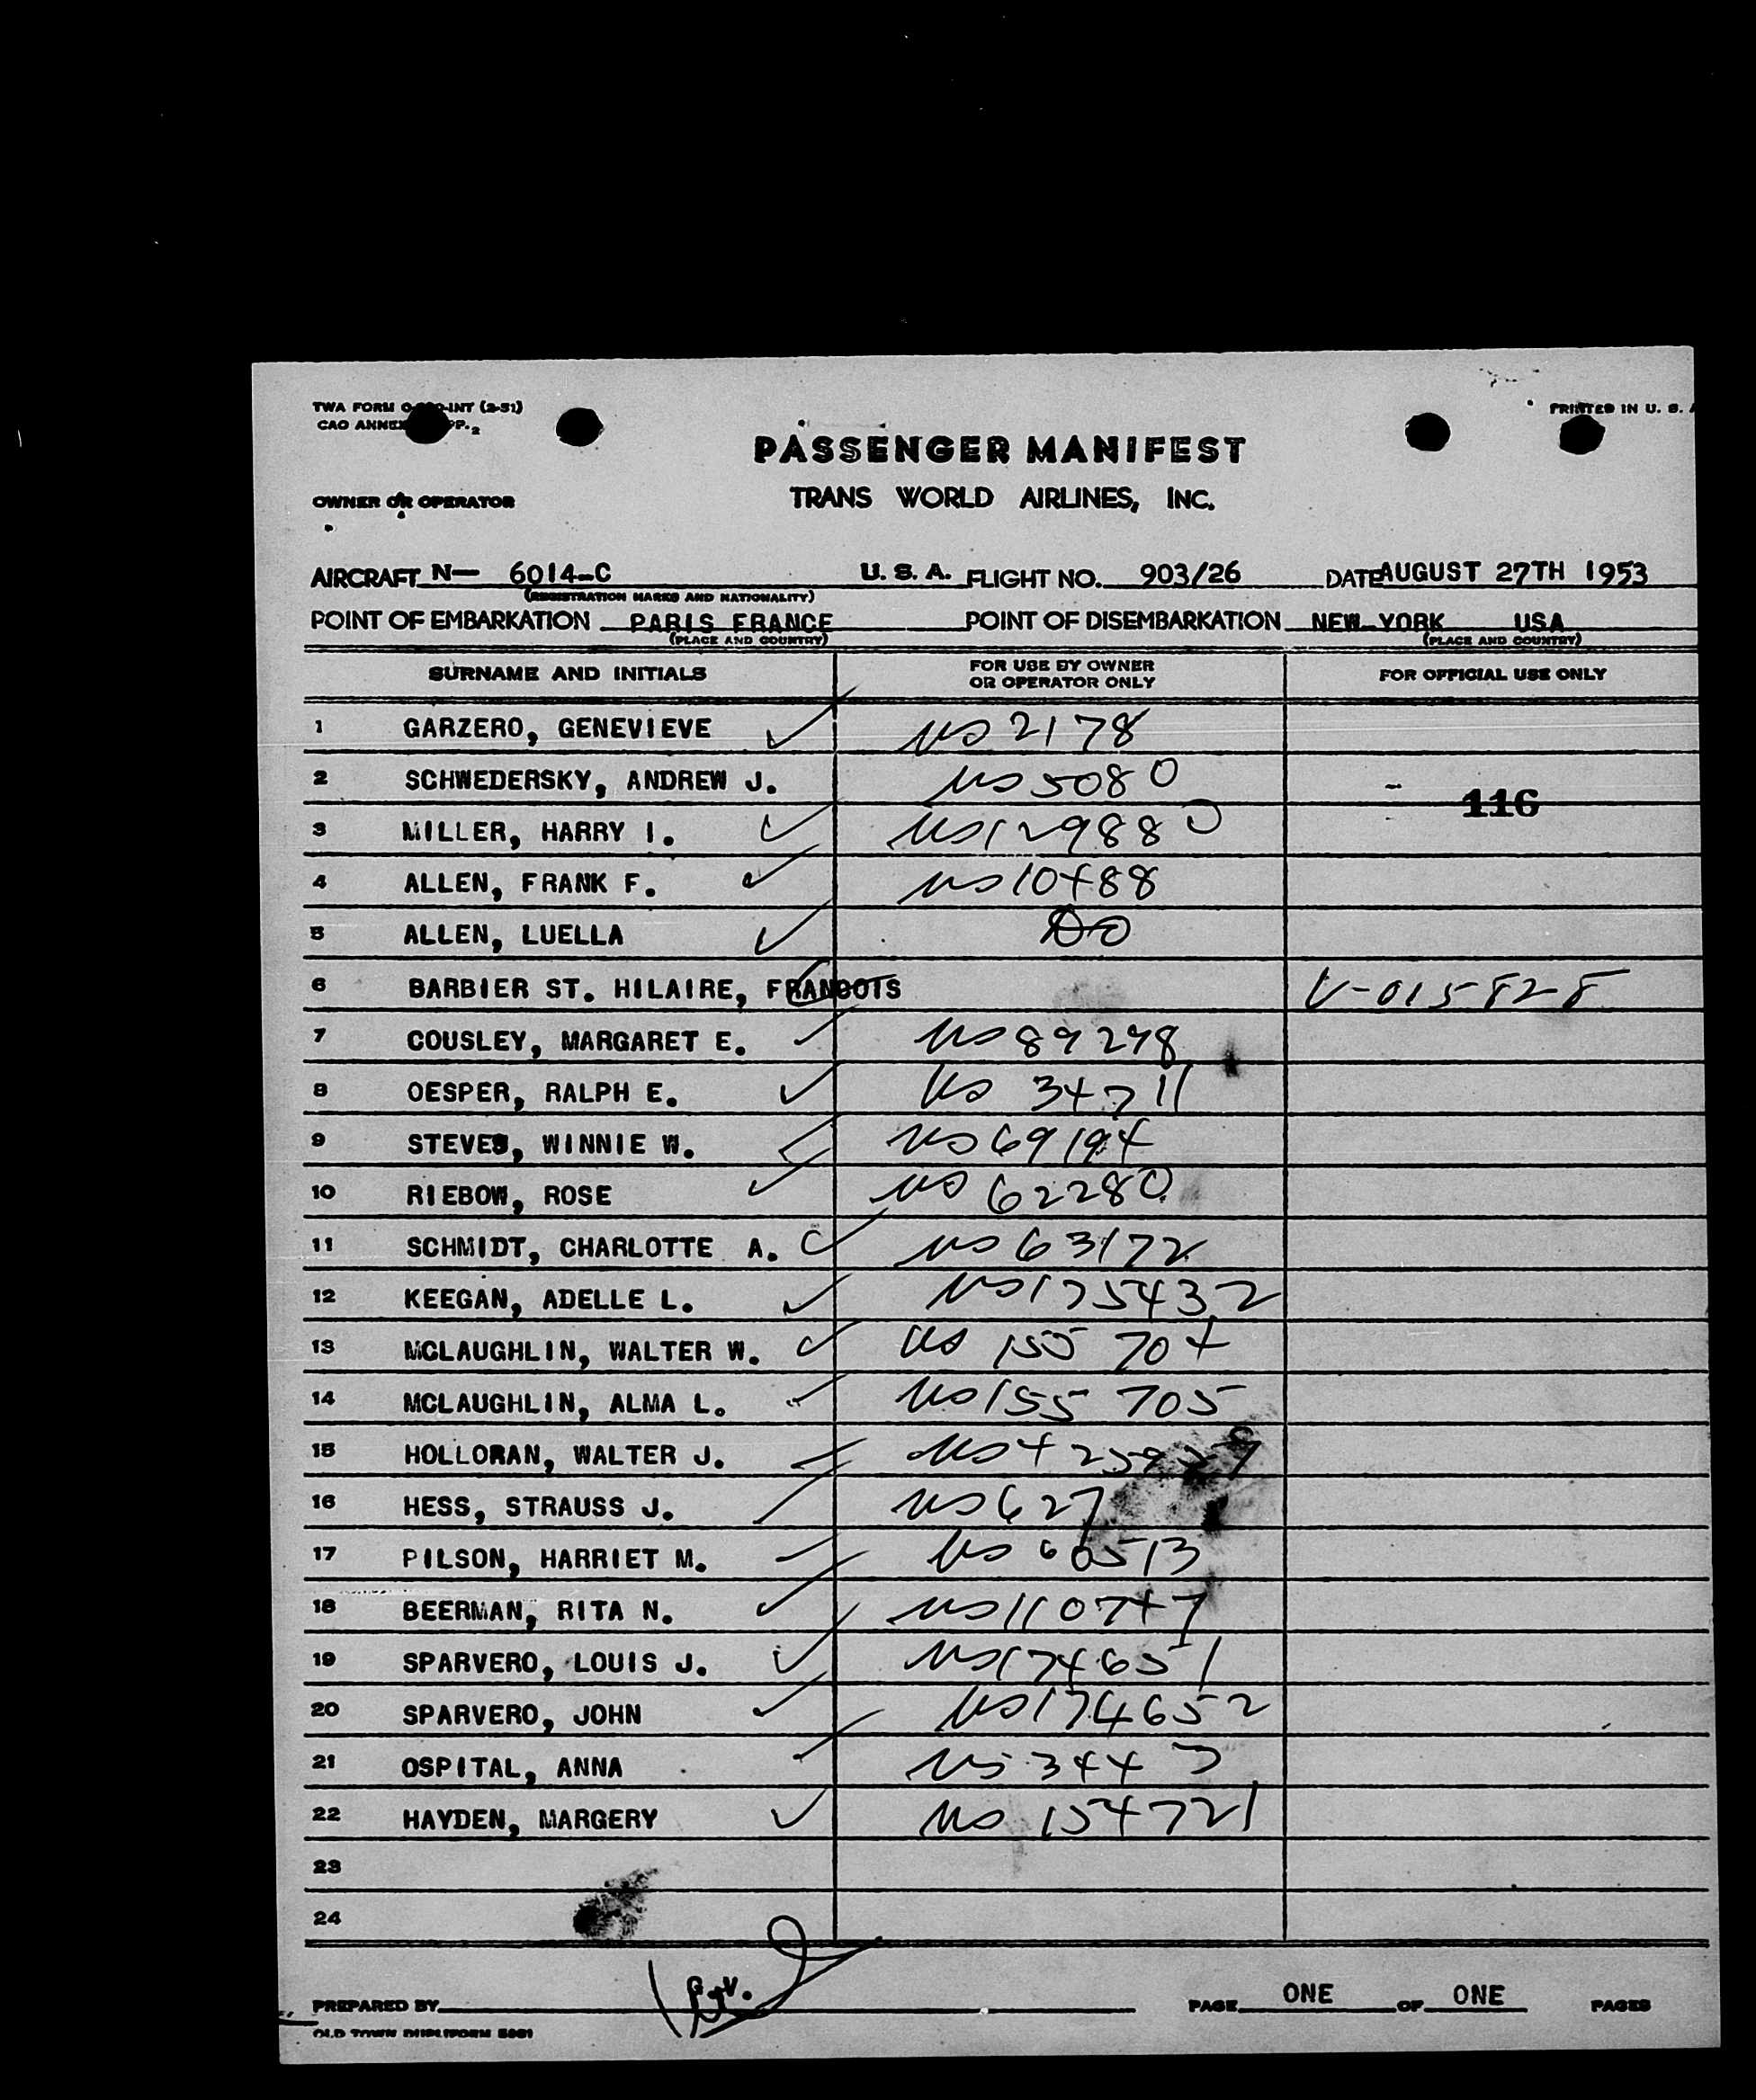 PRINTED IN U. S.
PASSENGER MANIFEST
OWNER OR OPERATOR
TRANS WORLD AIRLINES, INC.
AIRCRAFT N— 6014-C U. S. A. FLIGHT NO. 903/26 DATE AUGUST 27TH 1953
(REGISTRATION MARKS AND NATIONALITY)
POINT OF EMBARKATION PARIS FRANCE POINT OF DISEMBARKATION NEW YORK USA
(PLACE AND COUNTRY) (PLACE AND COUNTRY)
SURNAME AND INITIALS FOR USE BY OWNER OR OPERATOR ONLY FOR OFFICIAL USE ONLY
1 GARZERO, GENEVIEVE US 2178
2 SCHWEDERSKY, ANDREW J. US 5080
116
3 MILLER, HARRY I. US 129880
4 ALLEN, FRANK F. US 10488
5 ALLEN, LUELLA DO
6 BARBIER ST. HILAIRE, FRANCOIS V-015828
7 COUSLEY, MARGARET E. US 89298
8 OESPER, RALPH E. US 34711
9 STEVES, WINNIE W. US 69194
10 RIEBOW, ROSE US 62280
11 SCHMIDT, CHARLOTTE A. US 63172
12 KEEGAN, ADELLE L. US 175432
13 MCLAUGHLIN, WALTER W. US 155704
14 MCLAUGHLIN, ALMA L. US 155705
15 HOLLORAN, WALTER J. US
16 HESS, STRAUSS J. US 627
17 PILSON, HARRIET M. US 60513
18 BEERMAN, RITA N. US 110747
19 SPARVERO, LOUIS J. US 174651
20 SPARVERO, JOHN US 174652
21 OSPITAL, ANNA US
22 HAYDEN, MARGERY US 154721
23
24
PREPARED BY G.V. PAGE ONE OF ONE PAGES
OLD TOWN DUPLIFORM